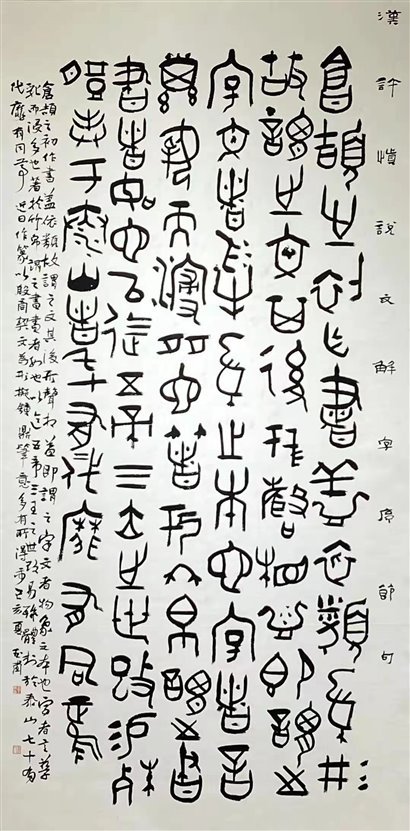 漢許慎說文解字序節句
倉頡之初作書蓋依類形
故謂之文其後形聲相益即謂之
字文者物象之本也字者言
孳乳而浸多也著於竹帛謂之書
書者如也以迄五帝三王之世改易殊
體封于泰山者七十有代靡有同焉
倉頡之初作書盖依類故謂之文其後形聲相益即謂之字文者物象之本也字者言孳
乳而浸多也著於竹帛謂之書書者如也以迄五帝三王之世改易殊體封於泰山七十有
代靡有同焉 近日作篆以殷商契文為形擬鐘鼎筆意多有所得 己亥夏